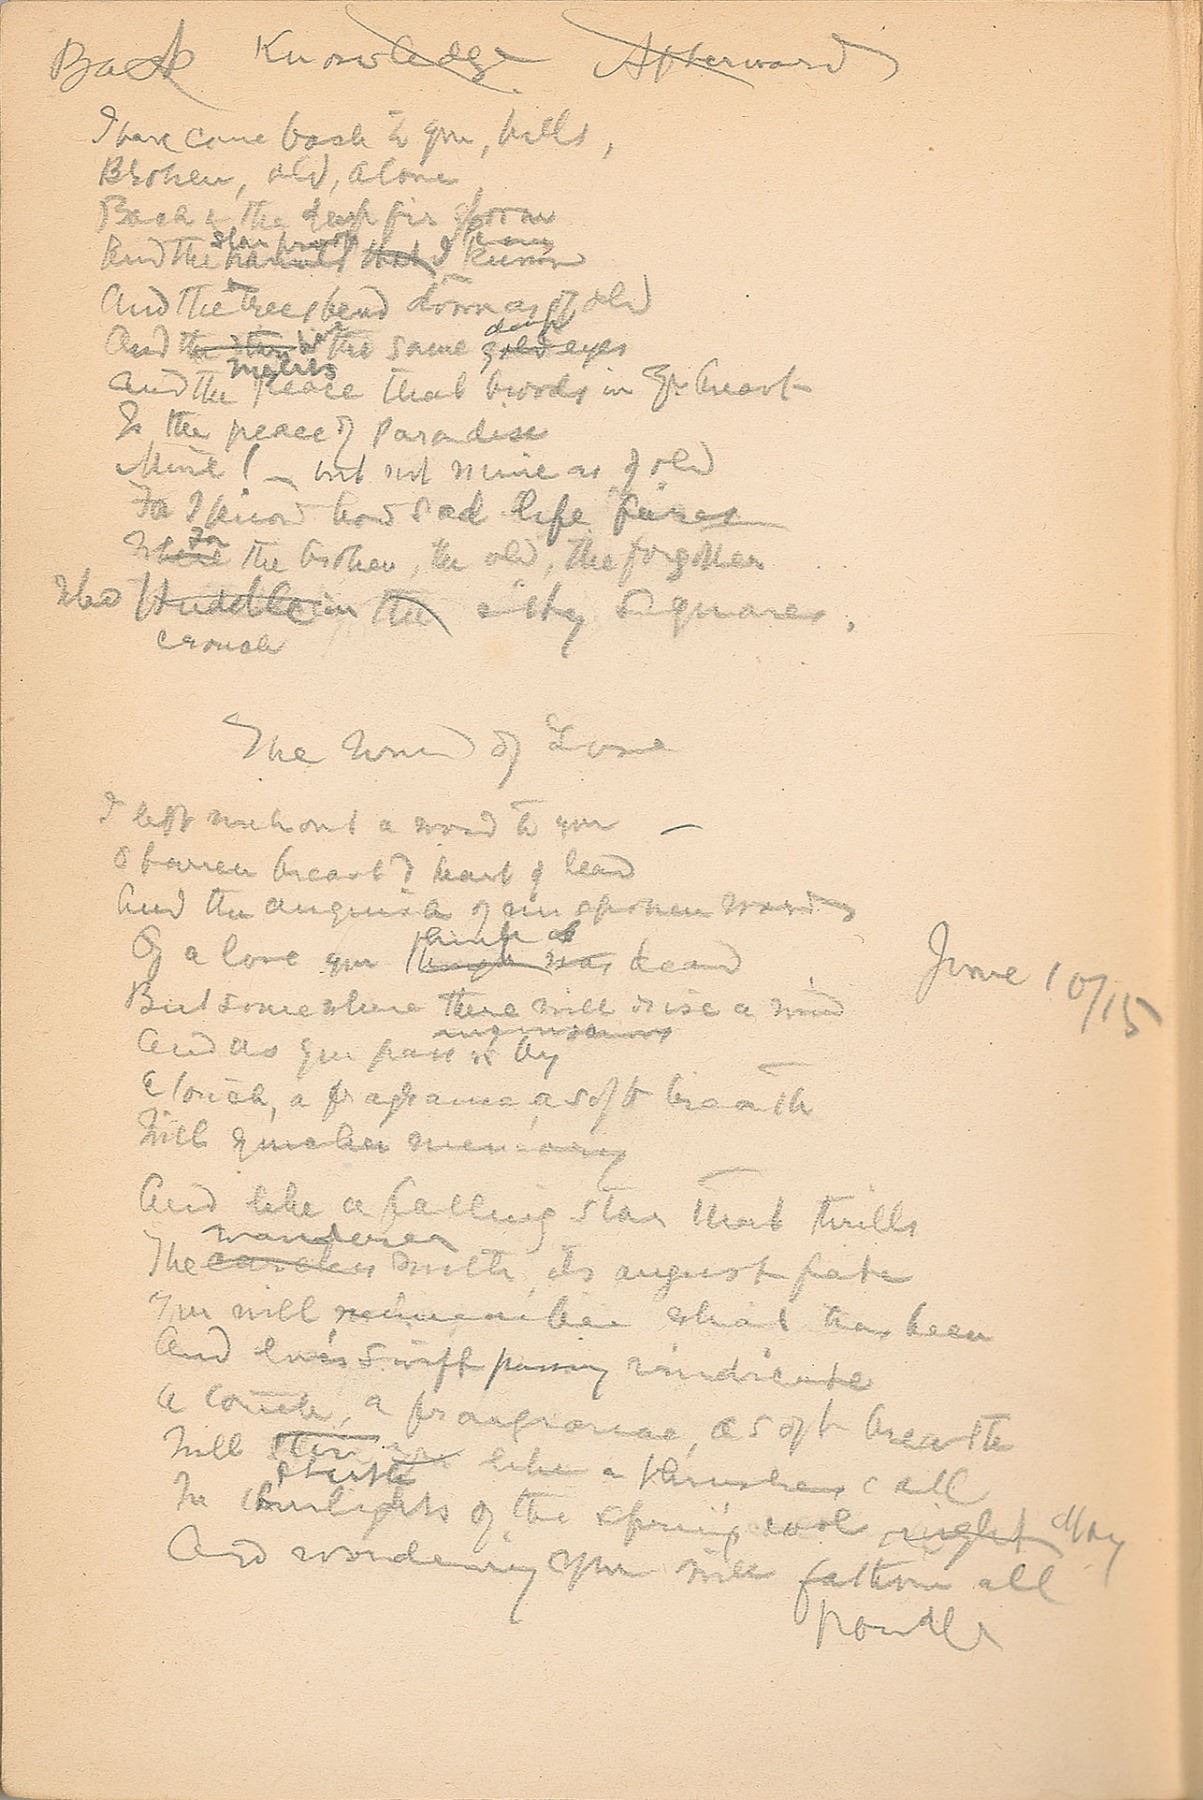 Back Knowledge Afterward
I have come back to you, hills,
Broken, old, alone
Back to the deep fir gloom
And the that I
And the trees bend down as of old
deep
And the stars the same gold eyes
nights
And the peace that broods in your heart
Is the peace of Paradise
Mine! – but not mine as of old
For I know how sad life fares
For
Where the broken, the old, the forgotten
Who Huddle in the city Squares.
crouch
The Wind of Love
I left without a word to you —
O barren breast & heart of lead
And the anguish of unspoken words
think is
Of a love you thought was dead
But somewhere there will rise a wind
And as you pass it by
A touch, a fragrance, a soft breath
Will quicken memory
June 10/15
And like a falling star that thrills
wanderer
The careless with its august fate
You will remember what has been
And love's swift passing vindicate
A touch, a fragrance, a soft breath
Will stir like a thrushes call
In twilights of the spring cool night day
And wondering you will fathom all